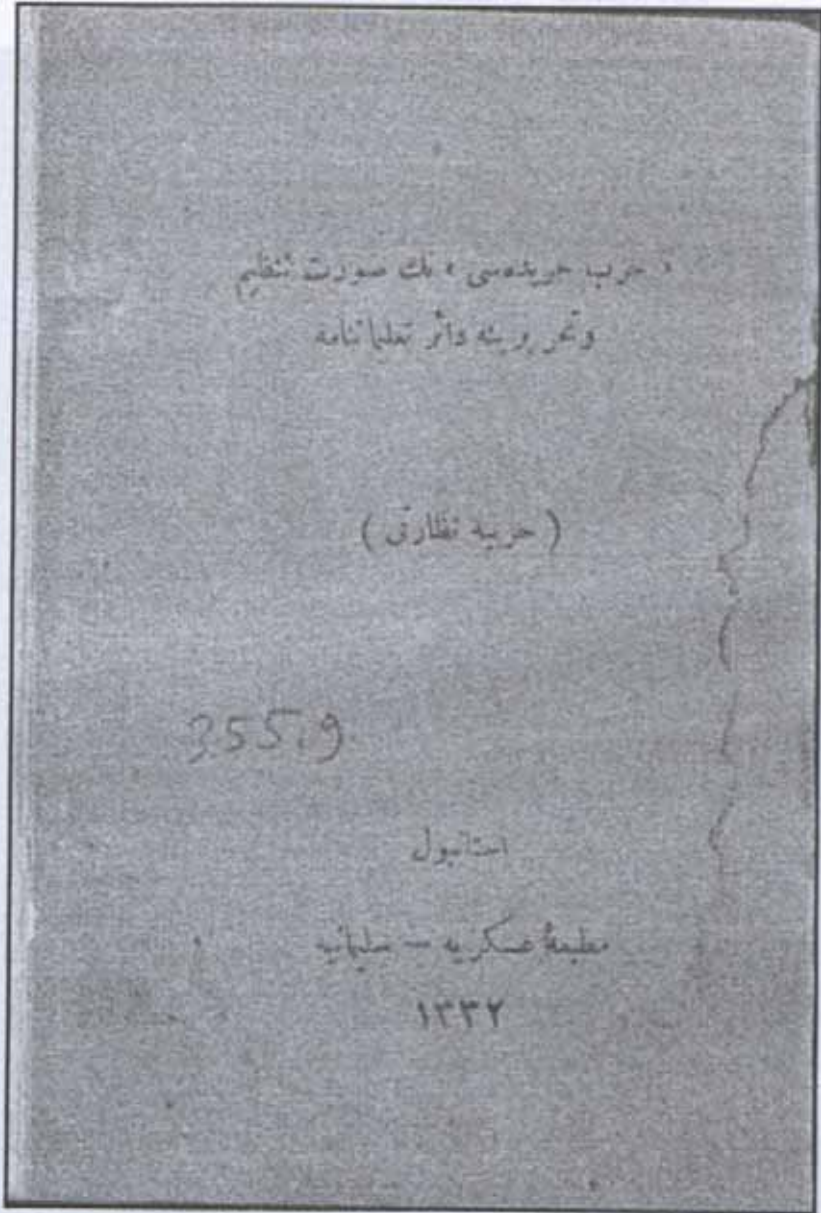 « حرب جریده‌سی » نك صورت تنظیم
وتحریرینه دائر تعلیماتنامه
( حربیه نظارتی )
355.9
استانبول
مطبعهٔ عسکریه — سلیمانیه
١٣٣٢